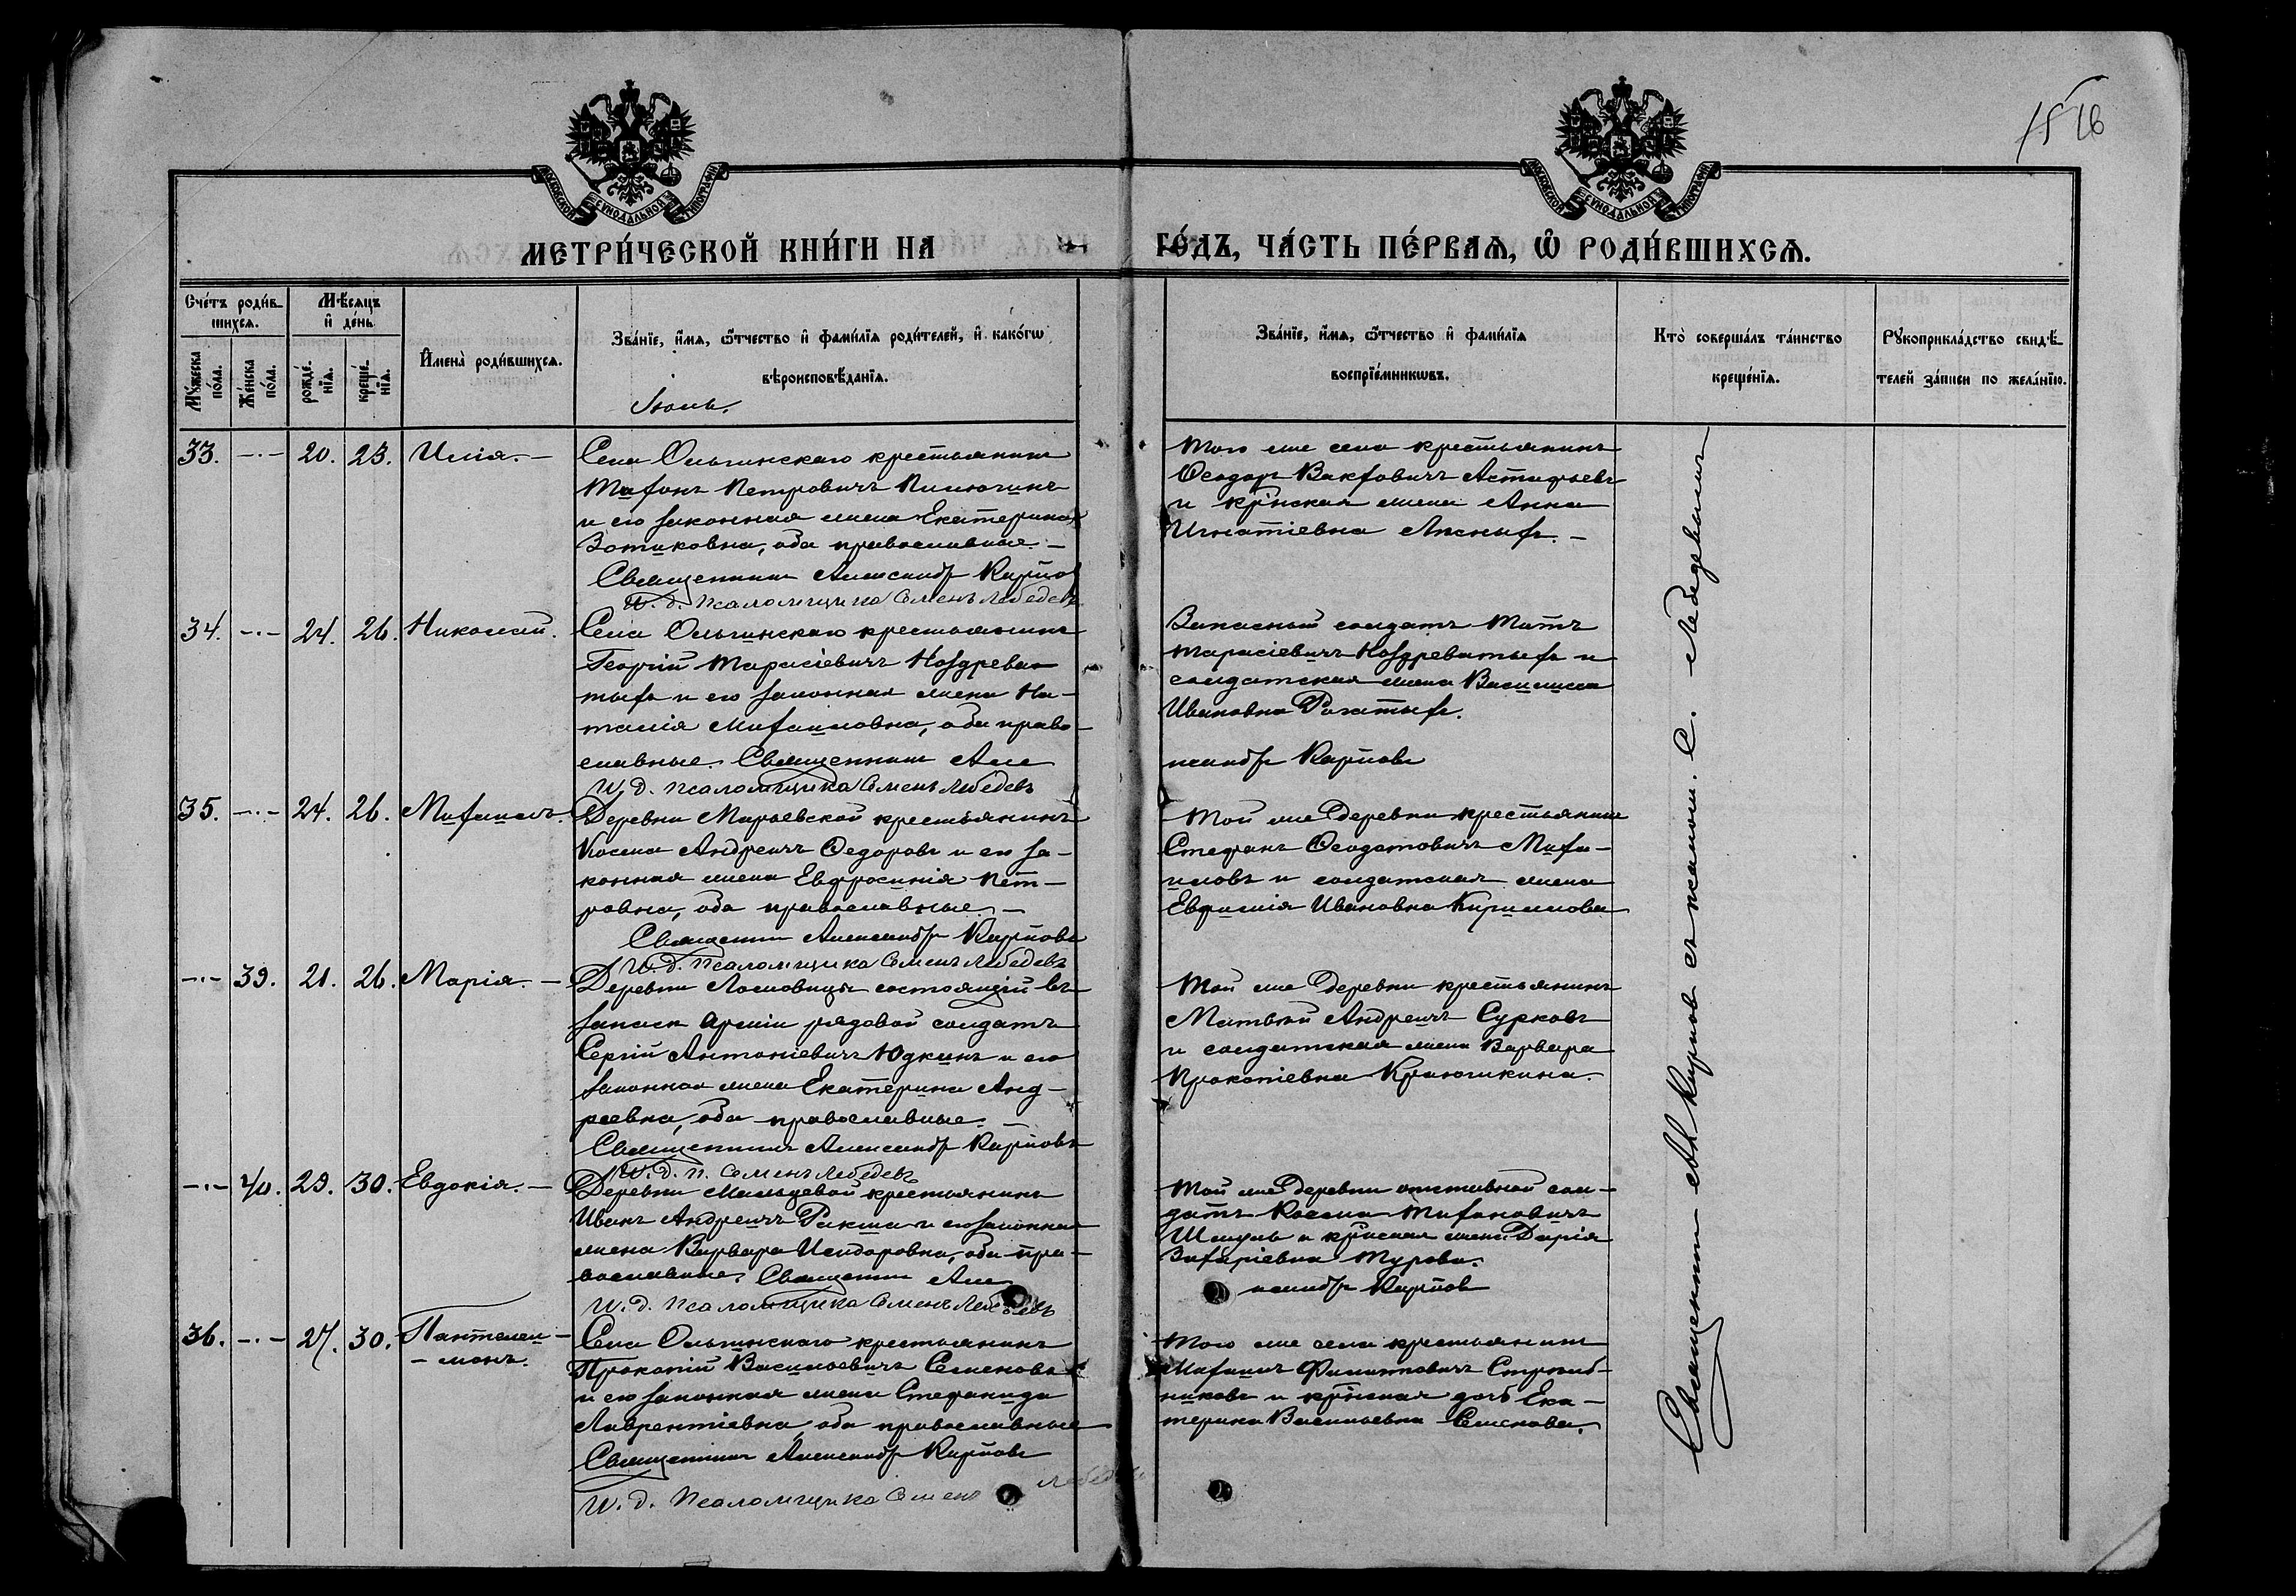 15 16
МОСКОВСКОЙ СѴНОДАЛЬНОЙ ТИПОГРАФІИ
МОСКОВСКОЙ СѴНОДАЛЬНОЙ ТИПОГРАФІИ
МЕТРИ́ЧЕСКОЙ КНИ́ГИ НА ГО́ДЪ, ЧА́СТЬ ПЕ́РВАѦ, Ѽ РОДИ́ВШИХСѦ.
Сче́тъ роди́в
шихсѧ.
Мѣ́сѧцъ
и҆ де́нь
Мꙋ́жеска
по́ла.
Же́нска
по́ла.
рожде́-
нїѧ.
креще́-
нїѧ.
И҆мена̀ роди́вшихсѧ.
Зва́нїе, и҆́мѧ, ѻ҆́тчество и҆ фами́лїѧ роди́телей, и҆ како́гѡ
вѣроисповѣ́данїѧ.
Зва́нїе, и҆́мѧ, ѻ҆́тчество и҆ фами́лїѧ
воспрїе́мникѡвъ.
Кто̀ соверша́лъ та́инство
креще́нїѧ.
Рꙋкоприкла́дство свидѣ́-
телей за́писи по жела́нїю.
Іюль.
33. -·- 20. 23. Илія. -
Села Ольгинскаго крестьянинъ
Трифонъ Петровичъ Пилюгинъ
и его законная жена Екатерина
Зотиковна, оба православные. -
Священникъ Александръ Карпов
И. д. псаломщика Семенъ Лебедевъ
Того же села крестьянинъ
Ѳеодоръ Астафьевъ
и кр-нская жена Анна
Игнатіевна
34. -·- 24. 26. Николай.
Села Ольгинскаго крестьянинъ
Георгій Тарасіевичъ Ноздрева-
тыхъ и его законная жена На-
талія Михаиловна, оба право-
славные. Священникъ Але
ксандръ Карповъ
И. д. псаломщика Семенъ Лебедевъ
Запасный солдатъ Титъ
Тарасіевичъ Ноздреватыхъ и
солдатская жена Василиса
Ивановна Рогатыхъ.
35. -·- 24. 26. Михаилъ.
Деревни Марьевской крестьянинъ
Косма Андреичъ Ѳедоровъ и его за-
конная жена Евфросинія Пет-
ровна, оба православные. -
Священник Александръ Карповъ
И. д. псаломщика Семенъ Лебедевъ
Той же деревни крестьянинъ
Стефанъ Михаи-
иловъ и солдатская жена
Евфимія Ивановна Кириллова
-·- 39. 21. 26. Марія. -
Деревни состоящій въ
запасѣ арміи рядовой солдатъ
Сергій Антоніевичъ Юдкинъ и его
законная жена Екатерина Анд-
реевна, оба православные.
Священникъ Александръ Карповъ
И. д. п. Семенъ Лебедевъ
Той же деревни крестьянинъ
Матвѣй Андреичъ Сурковъ
и солдатская жена Варвара
Прокопіевна
-·- 40. 29. 30. Евдокія. -
Деревни Мальцевой крестьянинъ
Иванъ Андреичъ Ракша и его законная
жена Варвара Исидоровна, оба пра-
вославные. Священник Але
ксандръ Карпов
И. д. псаломщика Семенъ Лебедевъ
Той же деревни отставной сол-
датъ Косма Трифоновичъ
и кр-нская жена Дарія
Захаріевна Турова.
36. -·- 27. 30. Пантелеи-
- монъ.
Села Ольгинскаго крестьянинъ
Прокопій Васильевичъ Семеновъ
и его законная жена Стефанида
Лаврентіевна, оба православные
Священникъ Александръ Карповъ
И. д. Псаломщика Семен Лебедевъ
Того же села крестьянинъ
Михаилъ Филиповичъ
и кр-нская дочь Ека-
терина Васильевна Семенова.
Священник Карпов съ псалом. С. Лебедевымъ